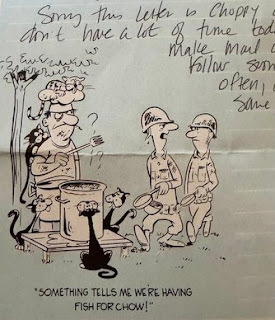 Sorry this letter is choppy
don't have a lot of time tod
make mail
follow
often,
same
"SOMETHING TELLS ME WE'RE HAVING
FISH FOR CHOW!"